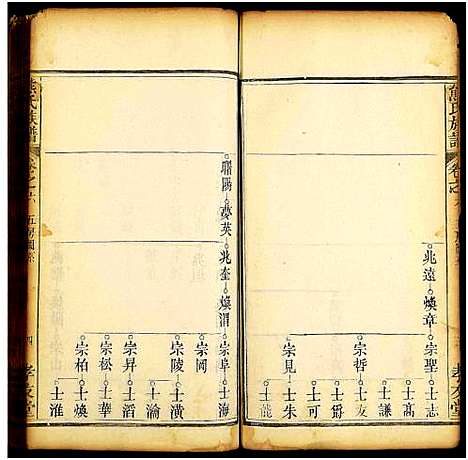 熊氏族譜
卷之六
兆遠 煥章 宗聖 士志
士高
士謙
宗哲 士友
士爵
士可
宗見 士朱
士龍
聯陽 夢英 兆奎 煥渭 宗阜 士海
宗岡
宗陵 士潢
士瀹
宗昇 士滔
宗松 士華
宗柏 士煥
士淮
熊氏族譜
卷之六
五房圖系
四
孝友堂